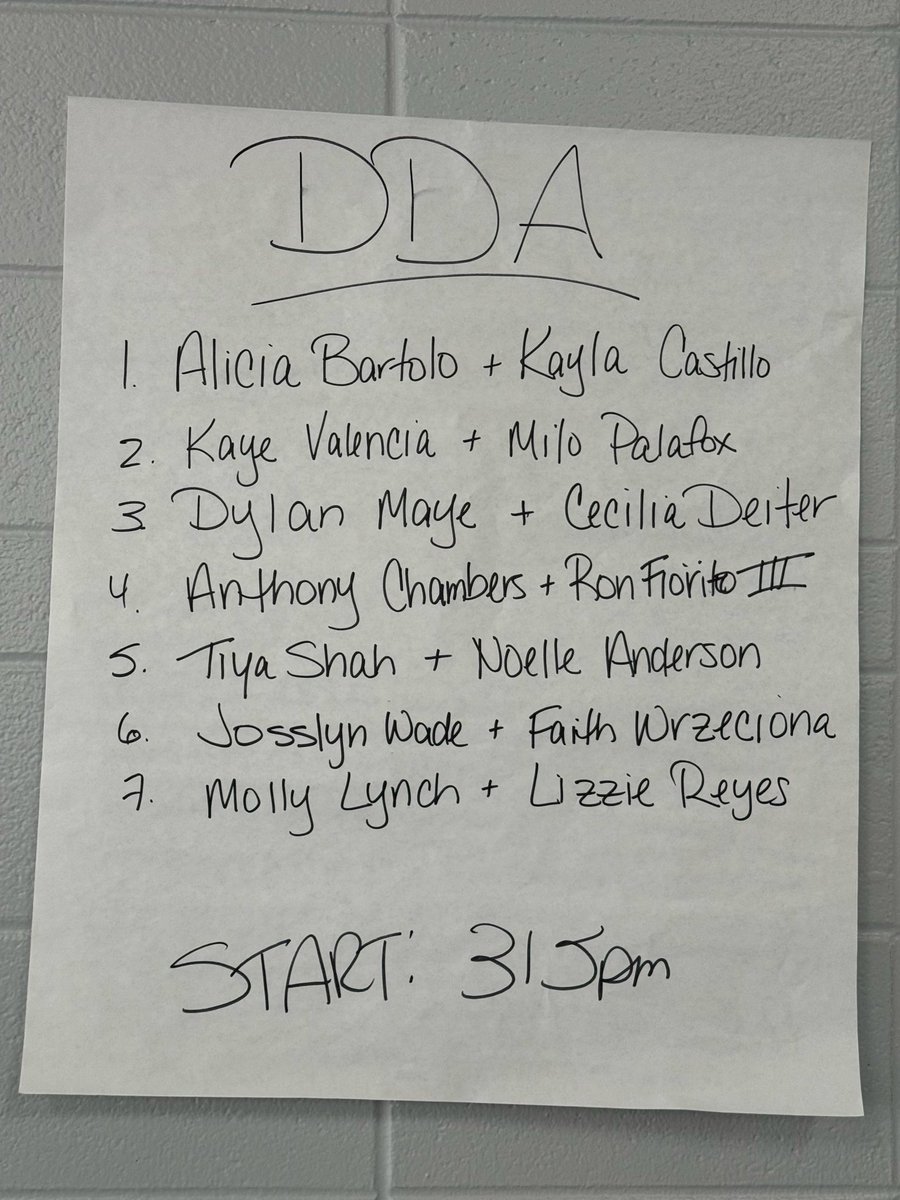 DDA
1. Alicia Bartolo + Kayla Castillo
2. Kaye Valencia + Milo Palafox
3 Dylan Maye + Cecilia Deiter
4. Anthony Chambers + Ron Fiorito III
5. Tiya Shah + Noelle Anderson
6. Josslyn Wade + Faith Wrzeciona
7. Molly Lynch + Lizzie Reyes
START: 315pm